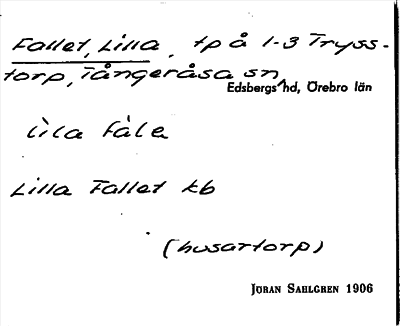 Fallet, Lilla, tp å 1-3 Tryss-
torp, Tångeråsa sn,
Edsbergs hd, Örebro län
lìla fále
Lilla Fallet kb
(husartorp)
Jöran Sahlgren 1906